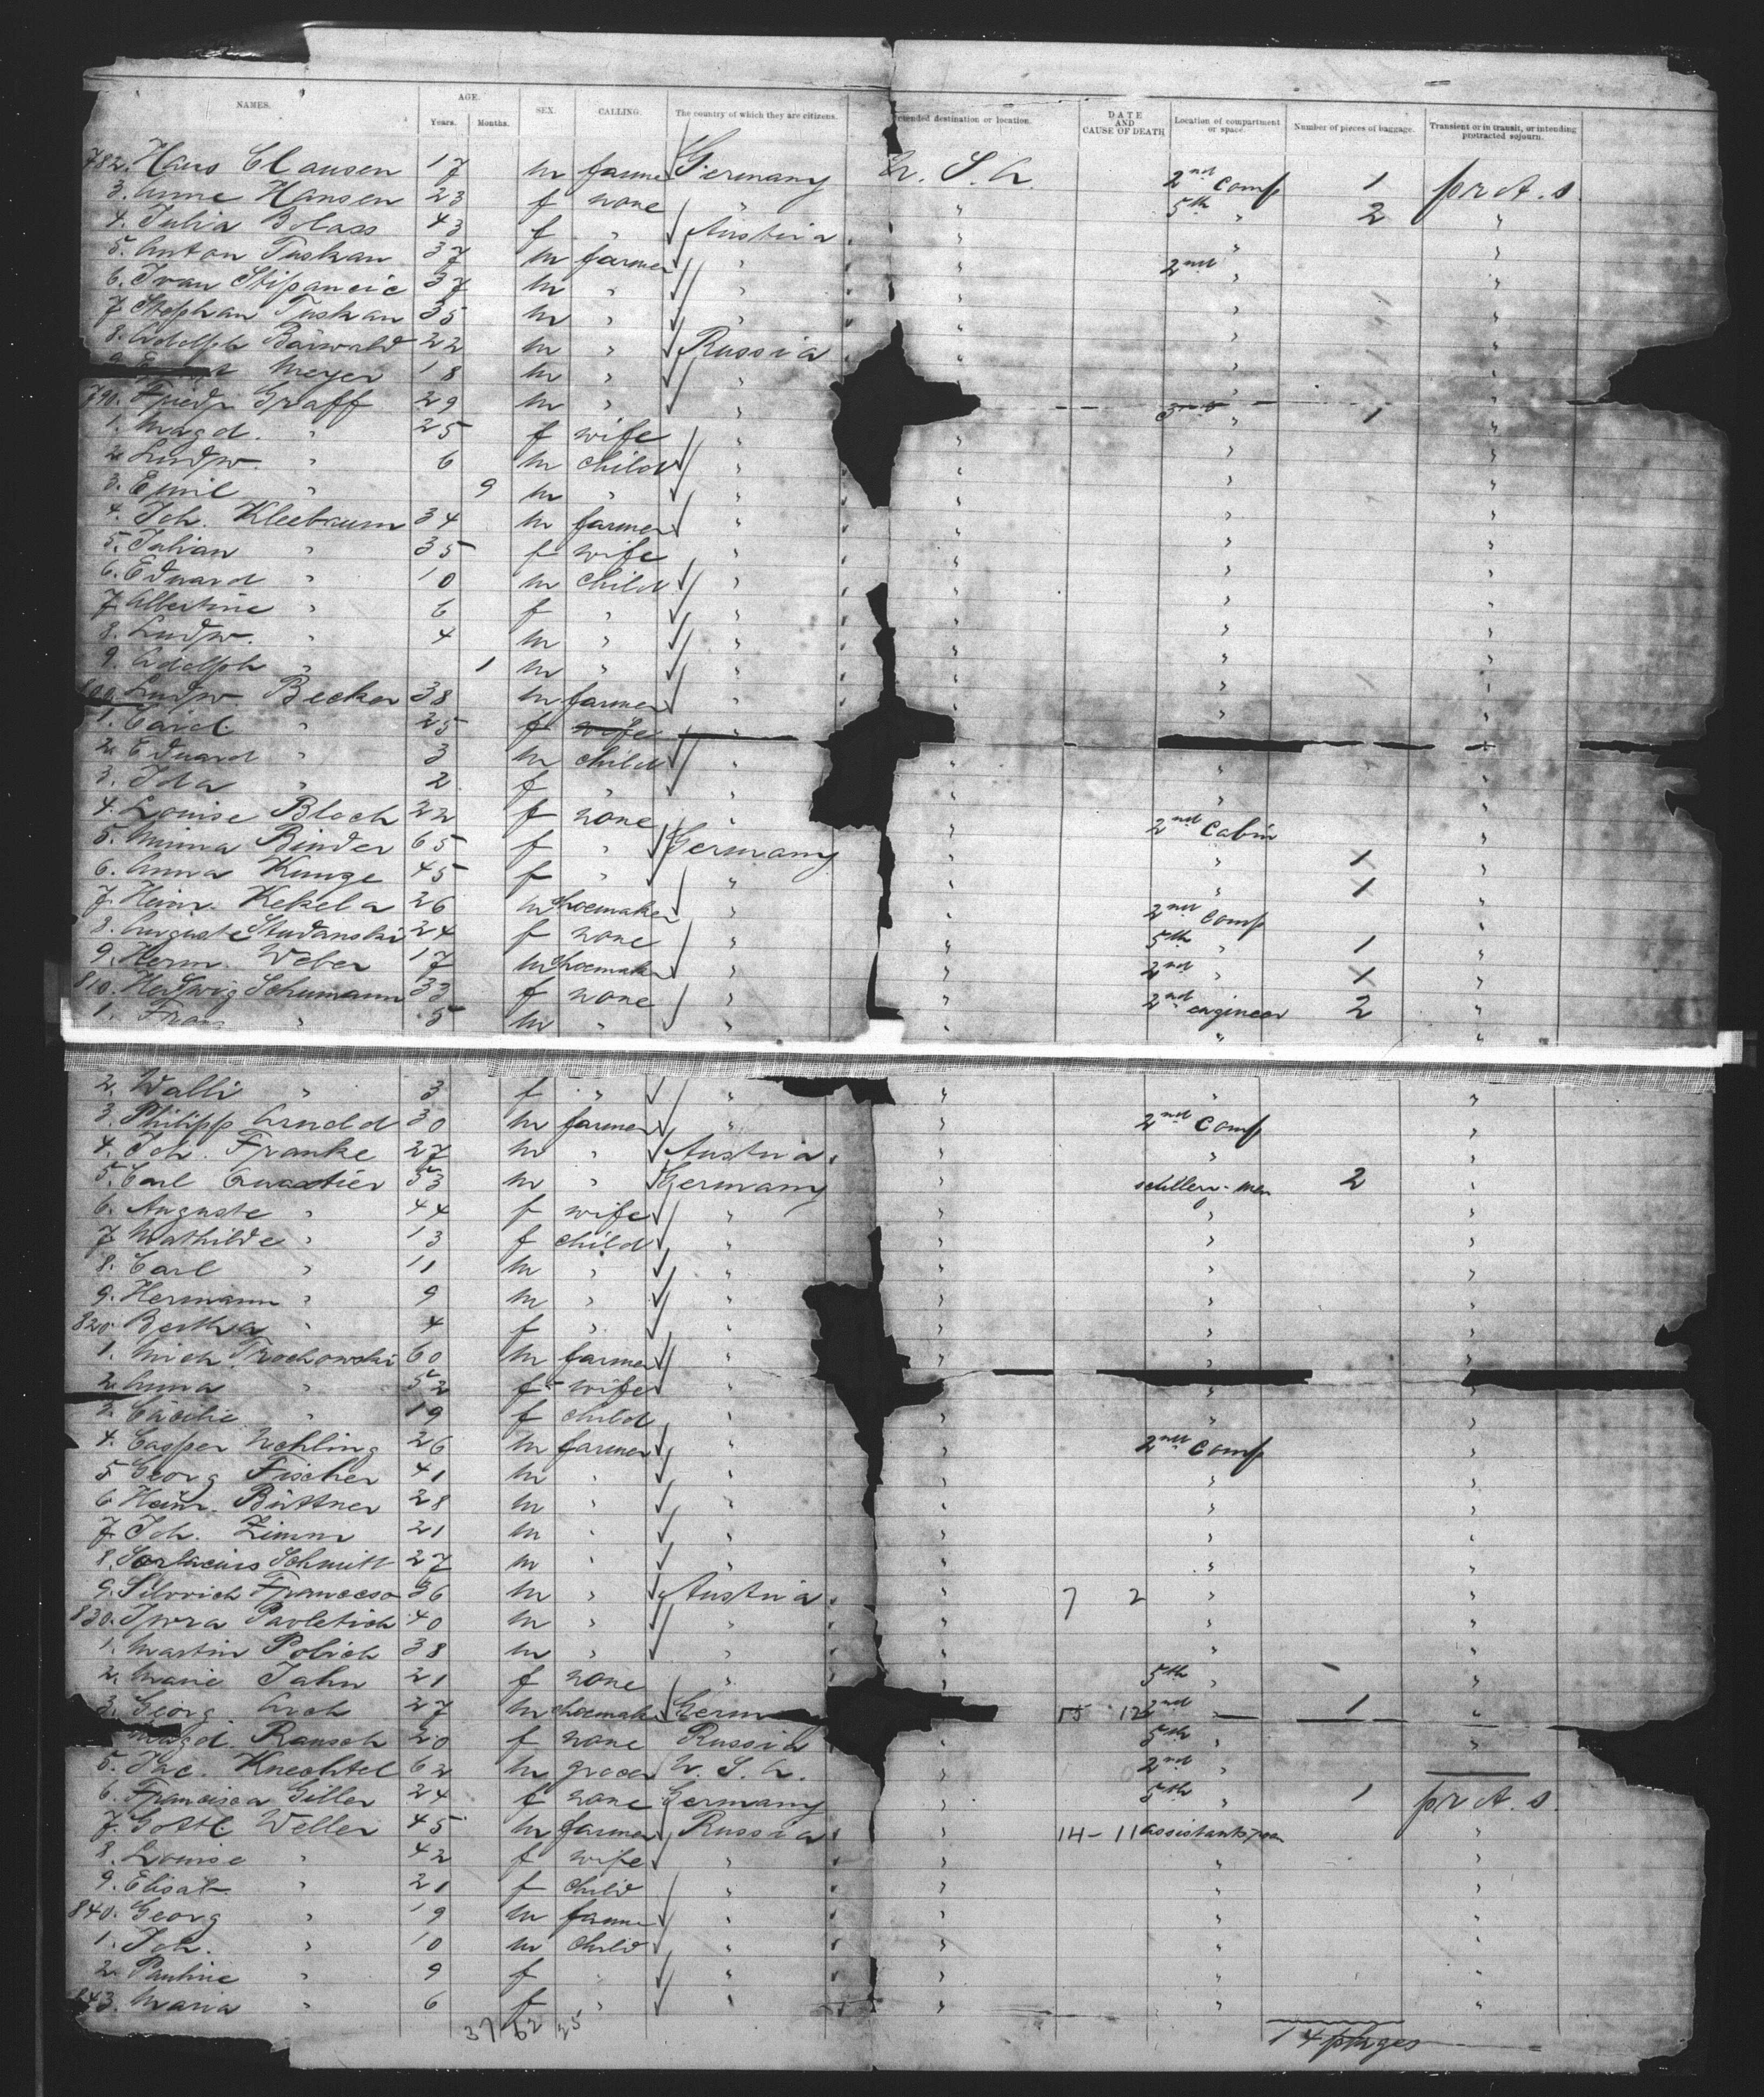 NAMES. AGE. Years. Months. SEX. CALLING. The country of which they are citizens. Intended destination or location. DATE AND CAUSE OF DEATH Location of compartment or space. Number of pieces of baggage. Transient or in transit, or intending protracted sojourn.
782. Hans Clausen 17 m farmer Germany U. S. A. 2nd Comp 1 pr A. s.
3. Anne Hansen 23 f none " " 5th " 2 "
4. Julia Blass 43 f " Austria " " "
5. Anton Tuskan 37 m farmer " " 2nd " "
6. Ivan Stipancic 37 m " " " " "
7. Stephan Tuskan 35 m " " " " "
8. Adolph Bärwald 22 m " Russia " " "
9. Meyer 18 m " " " "
790. Friedr. Graff 29 m " " 3rd " 1 "
1. Magd. " 25 f wife " " " "
2. Ludw. " 6 m child " " " "
3. Emil " 9 m " " " " "
4. Joh. Kleebaum 34 m farmer " " " "
5. Julian " 35 f wife " " " "
6. Eduard " 10 m child " " " "
7. Albertine " 6 f " " " " "
8. Ludw. " 4 m " " " " "
9. Adolph " 1 m " " " " "
800. Ludw. Becker 38 m farmer " " " "
1. Carol. " 25 f wife "
2. Eduard " 3 m child " " " "
3. Ida " 2 f " " " " "
4. Louise Bloch 22 f none " " 2nd Cabin "
5. Minna Binder 65 f " Germany " " 1 "
6. Anna Kunze 45 f " " " " 1 "
7. Heinr. Kekela 26 m shoemaker " " 2nd Comp "
8. Auguste Studanski 24 f none " " 5th " 1 "
9. Herm. Weber 17 m shoemaker " " 2nd " 1 "
810. Hedwig Schumann 33 f none " " 2nd engineer 2 "
1. Franz " 5 m " " " " "
2. Walli " 3 f " " " " "
3. Philipp Arnold 30 m farmer " " 2nd Comp "
4. Joh. Franke 27 m " Austria " " "
5. Carl Quastier 53 m " Germany " 2 "
6. Auguste " 44 f wife " " " "
7. Mathilde " 13 f child " " " "
8. Carl " 11 m " " " " "
9. Hermann " 9 m " " " " "
820. Bertha " 4 f " " " " "
1. Mich. Trochowski 60 m farmer " " " "
2. Anna " 52 f wife " "
3. Cäcilie " 19 f child " " " "
4. Casper Uchling 26 m farmer " " 2nd Comp "
5. Georg Fischer 41 m " " " " "
6. Heinr. Büttner 28 m " " " " "
7. Joh. Zimm 21 m " " " " "
8. Schmitt 27 m " " " " "
9. Silvrich Francesco 36 m " Austria " 7 2 " "
830. Pavletich 40 m " " " " "
1. Martin Polich 38 m " " " " "
2. Marie Jahn 21 f none " " 5th " "
3. Georg Arch 27 m shoemak. Germ 15 12 2nd " 1 "
Magd. Rausch 20 f none Russia " 5th " "
5. Jac. Knechtel 62 m grocer U. S. A. " 2nd "
6. Francisca Giller 24 f none Germany " 5th " 1 pr A. s.
7. Gottl. Weller 45 m farmer Russia " 14-11 assistants room "
8. Louise " 42 f wife " " " "
9. Elisab. " 21 f child " " " "
840. Georg " 19 m farmer " " " "
1. Joh. " 10 m child " " " "
2. Pauline " 9 f " " " " "
843. Maria " 6 f " " " " "
37 62 25
14 pages